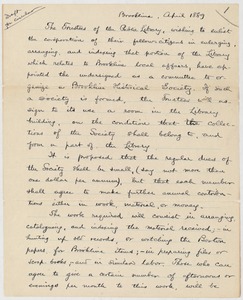 Draft
1
Brookline, April 1889
The Trustees of the Public Library, wishing to enlist
the cooperation of their fellow-citizens in enlarging,
arranging, and indexing that portion of the Library
which relates to Brookline local affairs, have ap-
pointed the undersigned as a committee to or-
ganize a Brookline Historical Society. If such
a Society is formed, the Trustees will as-
sign to its use a room in the Library
building, on the condition that the Collec-
tions of the Society shall belong to, and
form a part of the Library.
It is proposed that the regular dues of
the Society shall be small (say not more than
one dollar per annum), but that each member
shall agree to make further annual contribu-
tions either in work, material, or money.
The work required will consist in arranging,
cataloguing, and indexing the material received; in
hunting up old records, or watching the Boston
papers for Brookline items; in preparing files or
scrap books; and in kindred labor. Those who can
agree to give a certain number of afternoons or
evenings per month to this work, will be